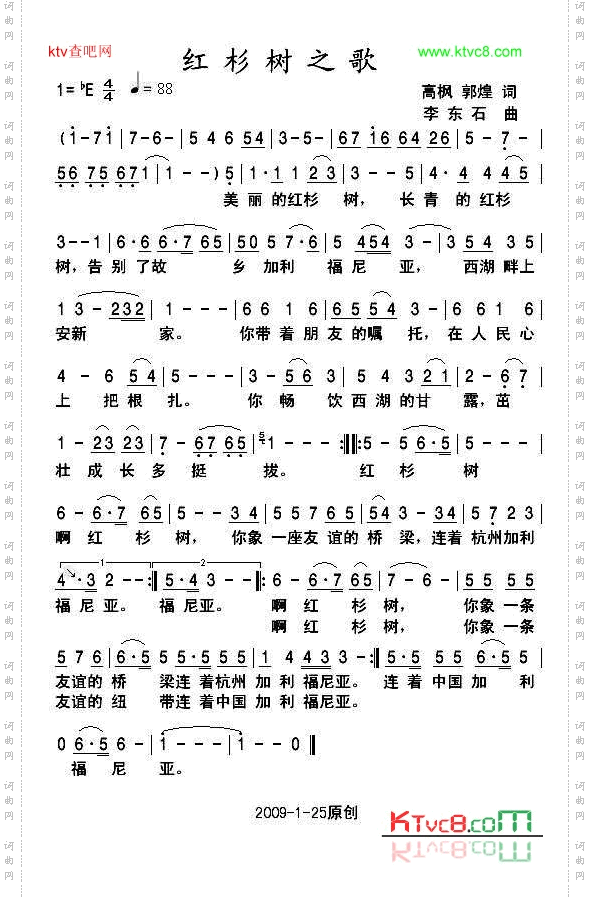 ktv查吧网
红杉树之歌
www.ktvc8.com
1=♭E 4/4 ♩=88
高枫 郭煌 词
李东石 曲
(i-71|7-6-|5 4 6 54|3-5-|67 16 64 26|5-7-|
56 75 67 1|1---)5|1·1 1 23|3---|4·5 4 3|4·4 4 45|
美丽的红杉 树, 长青的红杉
3--1|6·6 6·7 65|50 57 3·1|5 454 3-|3 54 35|
树,告别了故 乡加利福尼亚, 西湖畔上
13-232|1---|66 1 6|65 54 3·1|66 61 6|
安新 家。 你带着朋友的嘱 托,在人民心
4-6 54|5---|3-3 56|3 54 3 21|2-67|
上 把根扎。 你 畅 饮西湖的甘 露,茁
1-23 23|7-67 65|1---:||:5-5 6·5|5---|
壮成长多挺 拔。 红 杉 树
6-6·7 65|5--34|5 57 5 34|5--34|57 23|
啊红 杉 树, 你象一座友谊的桥梁,连着杭州加利
4·3 2--:|5·4 3--:|6-6·7 65|7-6-|55 55|
福尼亚。 福尼亚。 啊红 杉 树, 你象一条
啊红 杉 树, 你象一条
5 7 6|6·5 55 12|1 4433|3---:|5·5 55 6|5-5-|
友谊的桥 梁连着杭州加利福尼亚。 连着中国加 利
友谊的纽 带连着中国加利福尼亚。
0 6·5 6-|1---|1--0||
福尼 亚。
2009-1-25原创
KTvc8.com
词曲网